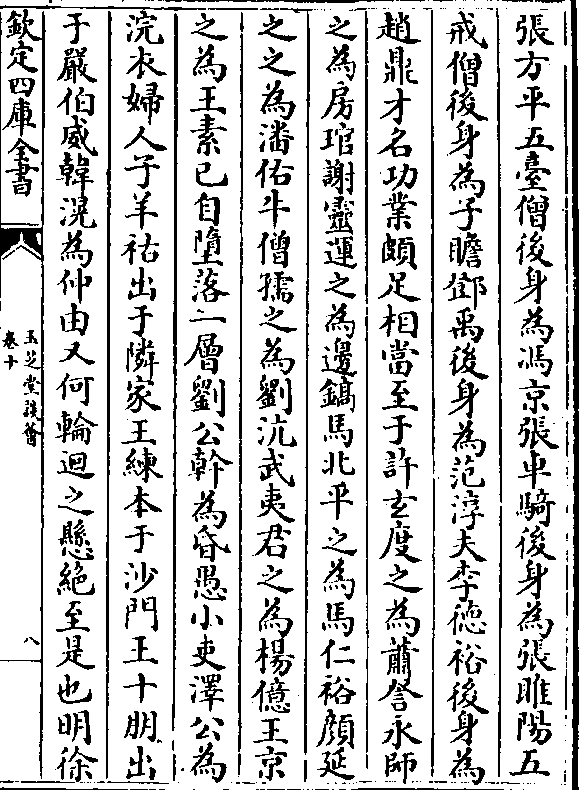 張方平五臺僧後身為馮京張車騎後身為張睢陽五
戒僧後身為子瞻鄧禹後身為范淳夫李德裕後身為
趙鼎才名功業頗足相當至于許玄度之為蕭詧永師
之為房琯謝靈運之為邊鎬馬北平之為馬仁裕顔延
之之為潘佑牛僧孺之為劉沆武夷君之為楊億王京
之為王素已自墮落一層劉公幹為昏愚小吏澤公為
浣衣婦人子羊祜出于隣家王練本于沙門王十朋出
于嚴伯威韓滉為仲由又何輪迴之懸絶至是也明徐
欽定四庫全書
玉芝堂談薈
卷十
八